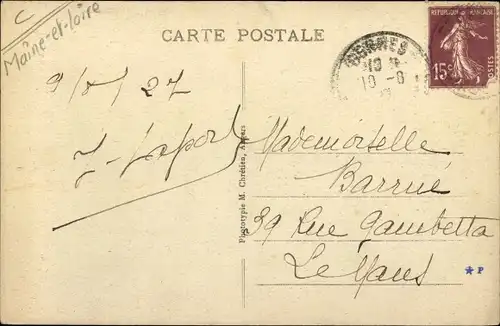 C
Maine-et-Loire
CARTE POSTALE
RENNES
REPUBLIQUE FRANCAISE
15c
POSTES
9/8/27
J. Laporte
Phototypie M. Chrétien, Angers
Mademoiselle
Barrué
39 Rue Gambetta
Le Mans
★ P